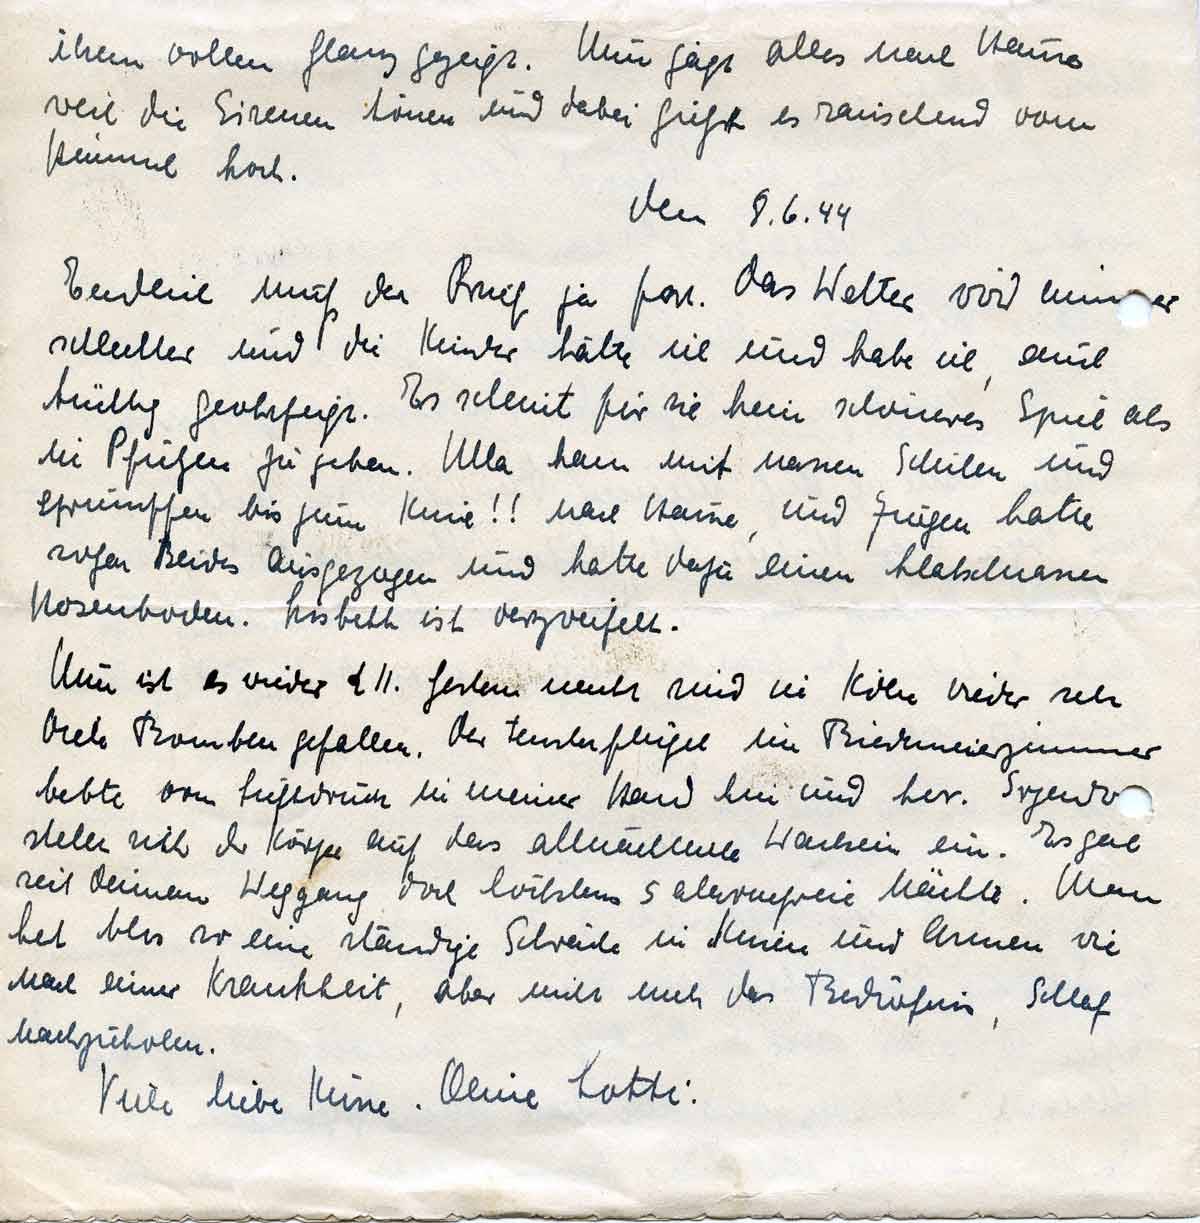 ihrem vollen Glanz gezeigt. Nun jagt alles nach Hause
weil die Sirenen tönen und dabei gießt es rauschend vom
Himmel hoch.
den 8.6.44
Endlich muß der Brief ja fort. Das Wetter wird immer
schlechter und die Kinder hätte ich und habe ich, auch
tüchtig geohrfeigt. Es scheint für sie kein schöneres Spiel als
in Pfützen zu gehen. Ulla kam mit nassen Schuhen und
Strümpfen bis zum Knie!! nach Hause, und Jürgen hatte
sogar Beides ausgezogen und hatte dafür einen klatschnassen
Hosenboden. Lisbeth ist verzweifelt.
Nun ist es wieder 11. Gestern nacht sind in Köln wieder sehr
viele Bomben gefallen. Der Fensterflügel im Biedermeierzimmer
bebte vom Luftdruck in meiner Hand hin und her. Irgendwo
stellt sich der Körper auf das allnächtliche Wachsein ein. Es gab
seit Deinem Weggang doch höchstens 5 alarmfreie Nächte. Man
hat blos so eine ständige Schwäche in Knien und Armen wie
nach einer Krankheit, aber nicht mehr das Bedürfnis, Schlaf
nachzuholen.
Viele liebe Küsse. Deine Lotte.